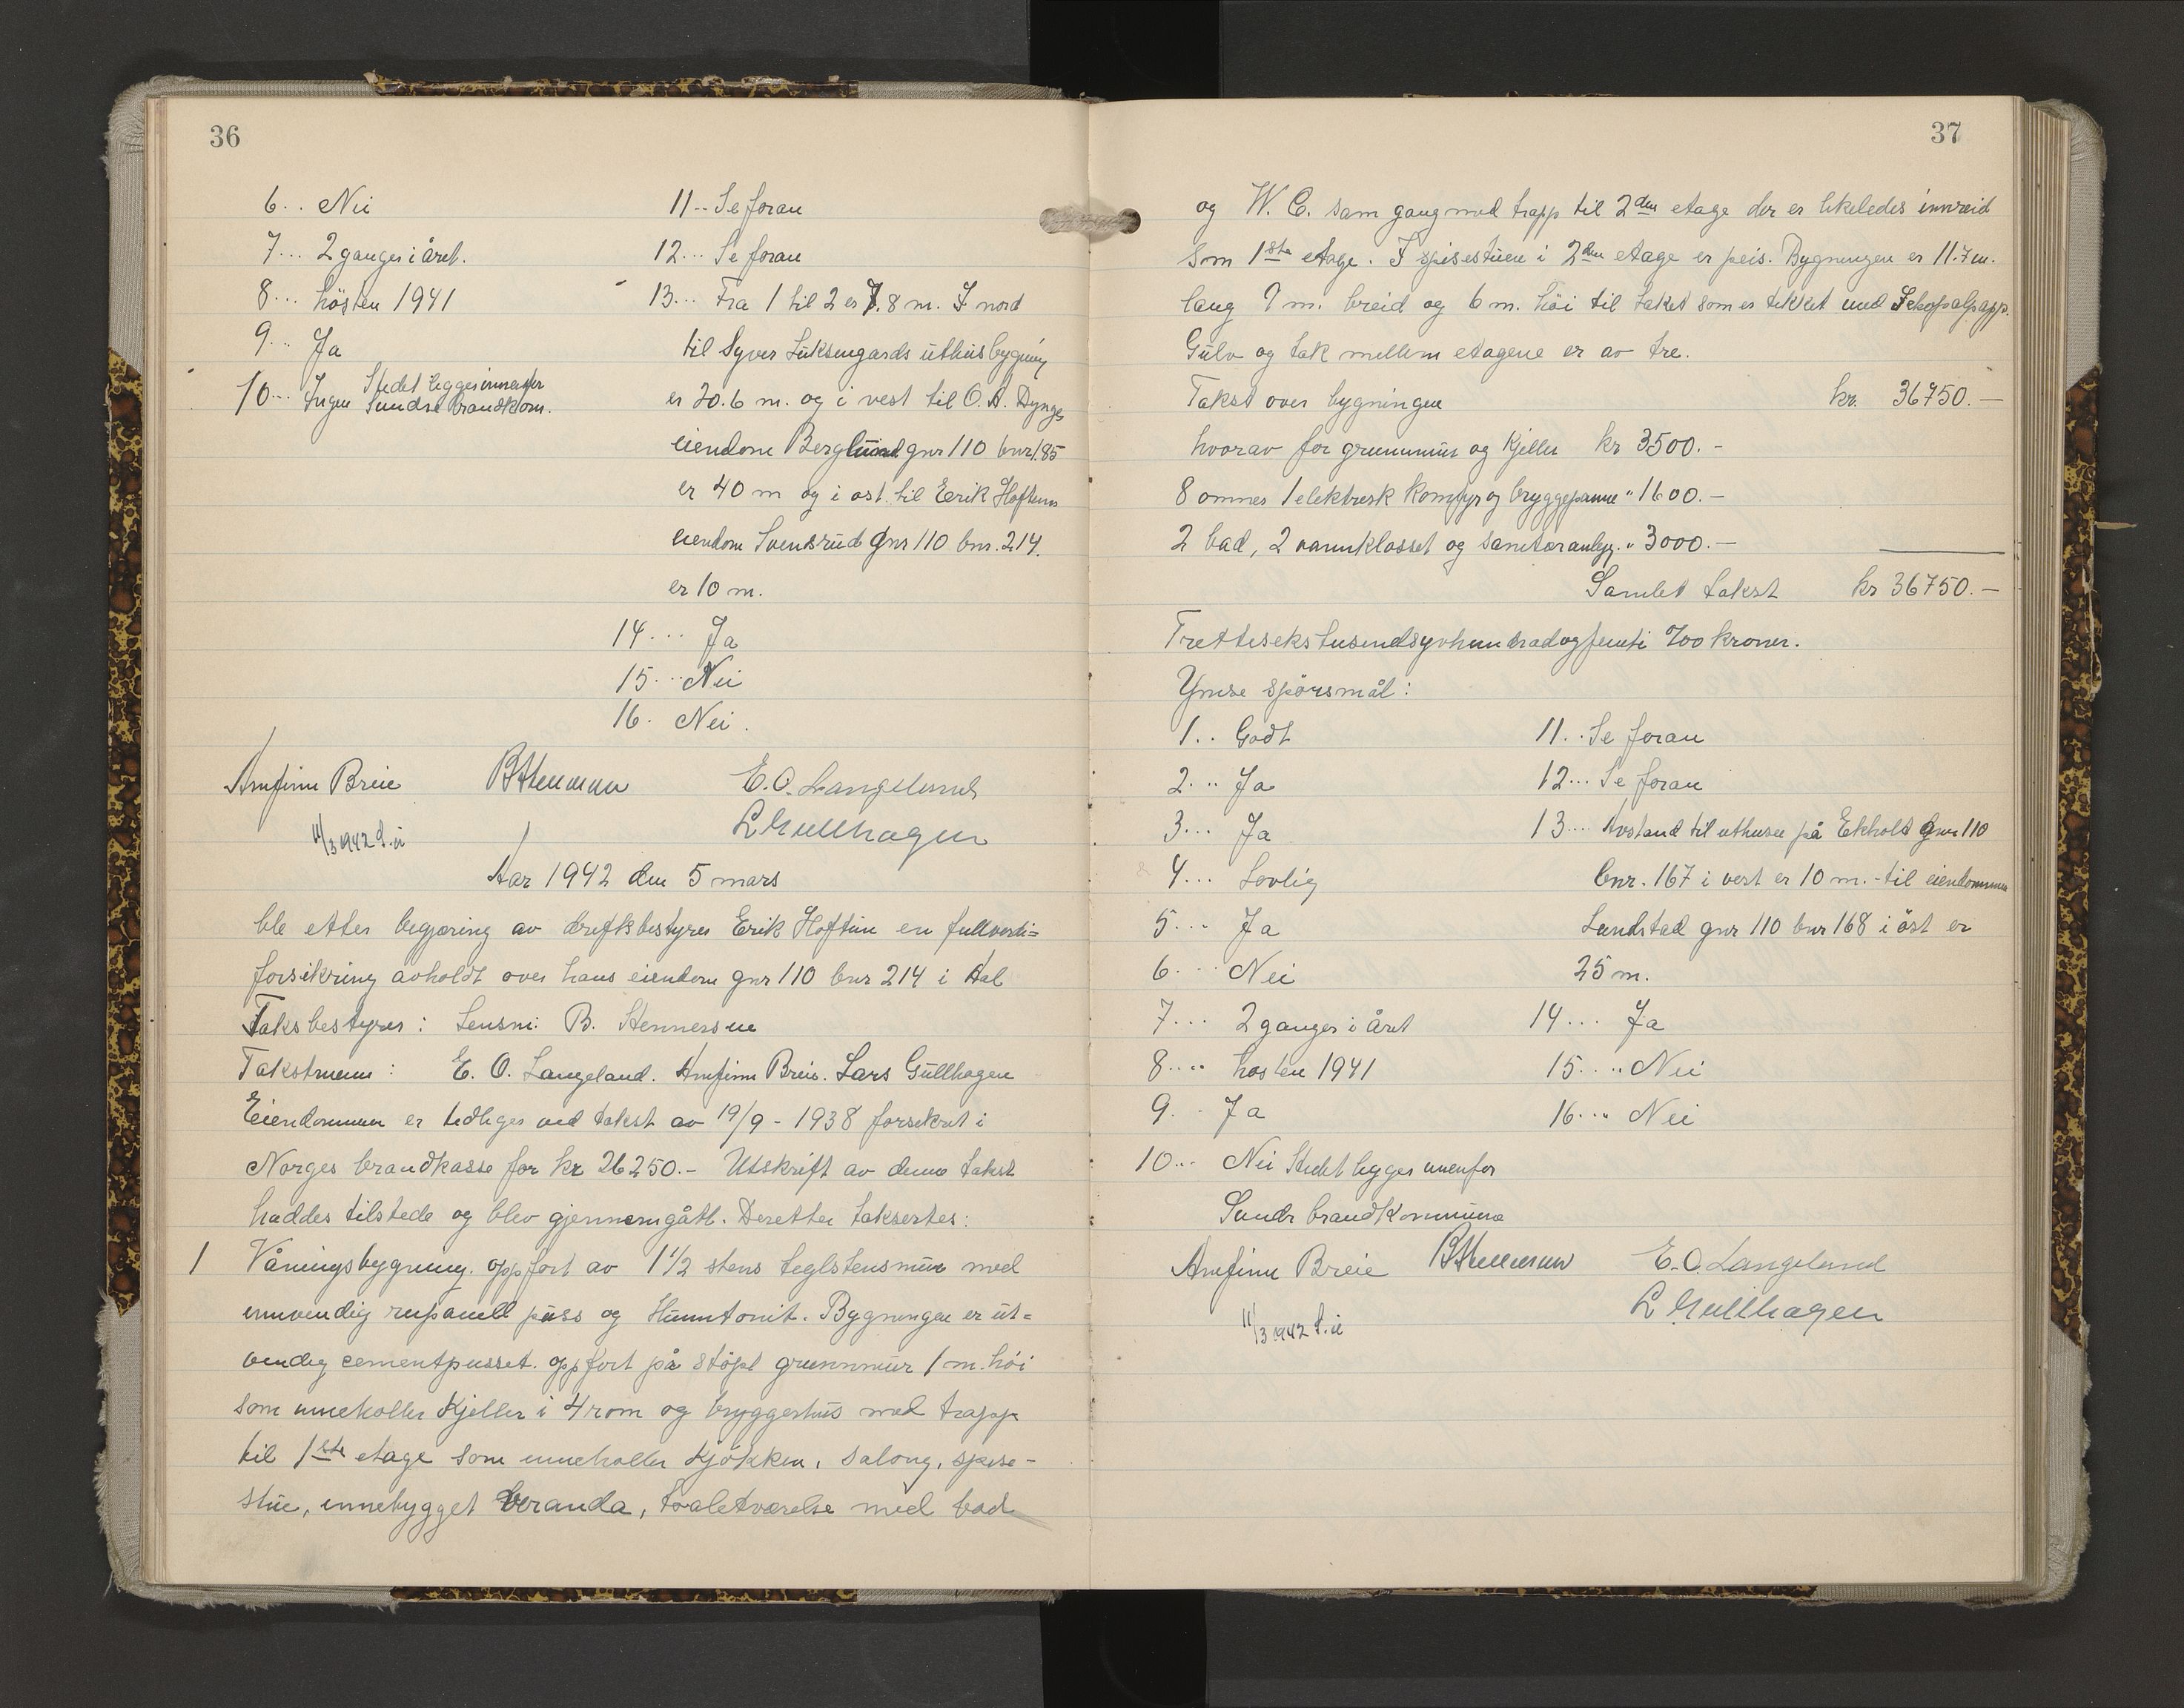 36
6.. Nei
7... 2 ganger i året.
8... hösten 1941
9... Ja
10... Ingen Stedet ligger innenfor
Sundre brandkom.
11... Se foran
12... Se foran
13... Fra 1 til 2 er 7.8 m. I nord
til Syver Luksengards uthusbygning
er 20.6 m. og i vest til O. A. Dynges
eiendom Berglund gnr 110 bnr 185
er 40 m og i ost til Eerik Hoftuns
eiendom Svensrud gnr 110 bnr. 214.
er 10 m.
14... Ja
15... Nei
16. Nei.
Arnfinn Breie BStennersen E. O. Langeland
L Gullhagen
11/3 1942 S.ü
Aar 1942 den 5 mars
ble etter begjæring av driftsbestyrer Erik Hoftun en fullverdi=
forsikring avholdt over hans eiendom gnr 110 bnr 214 i Aal
Taksbestyrer: Lensm: B. Stennersen
Takstmenn: E. O. Langeland. Arnfinn Breie. Lars Gullhagen
Eiendommen er tidliger ved takst av 19/9 - 1938 forsikret i
Norges brandkasse for kr 26250.- Utskrift av denne takst
haddes tilstede og blev gjennemgått. Deretter taksertes:
1 Våningsbygning. oppfort av 1 1/2 stens teglstensmur med
innvendig rupanell puss og Huntonit. Bygningen er ut=
vendig cementpusset. oppfort på stöpt grunnmur 1 m. höi
som inneholler Kjeller i 4 rom og bryggerhus med trapp
til 1ste etage som inneholler Kjökken, salong, spise-
stue, innebygget veranda, toaletværelse med bad
37
og W. C. samt gang med trapp til 2den etage der er likeledes innreid
som 1ste etage. I spisestuen i 2den etage er peis. Bygningen er 11.7 m.
lang 9 m. breid og 6 m. höi til taket som er tekket med
Gulv og tak mellem etagene er av tre.
Takst over bygningen kr. 36750.—
hvorav for grunnmur og Kjeller kr 3500.-
8 ovnner 1 elektresk Komfyr og bryggepanne " 1600.-
2 bad, 2 vannklosset og Sanitæranleg. " 3000.—
Samlet takst kr 36750.—
Trettisekstusendsyvhundradogfemti %oo kroner.
Ymse spörsmål:
1.. Godt
2... Ja
3... Ja
4... Lovlig
5... Ja
6... Nei
7... 2 ganger i året
8.... hosten 1941
9.. Ja
10... Nei Stedet ligger innenfor
Sundr brandkommune
11.. Se foran
12... Se foran
13... Avstand til uthuset på Ekholt gnr 110
bnr. 167 i vest er 10 m. - til eiendommen
Lundstad gnr 110 bnr 168 i öst er
25 m.
14... Ja
15.... Nei
16... Nei
Arnfinn Breie BStennersen E. O. Langeland
L Gullhagen
11/3 1942 S.ü